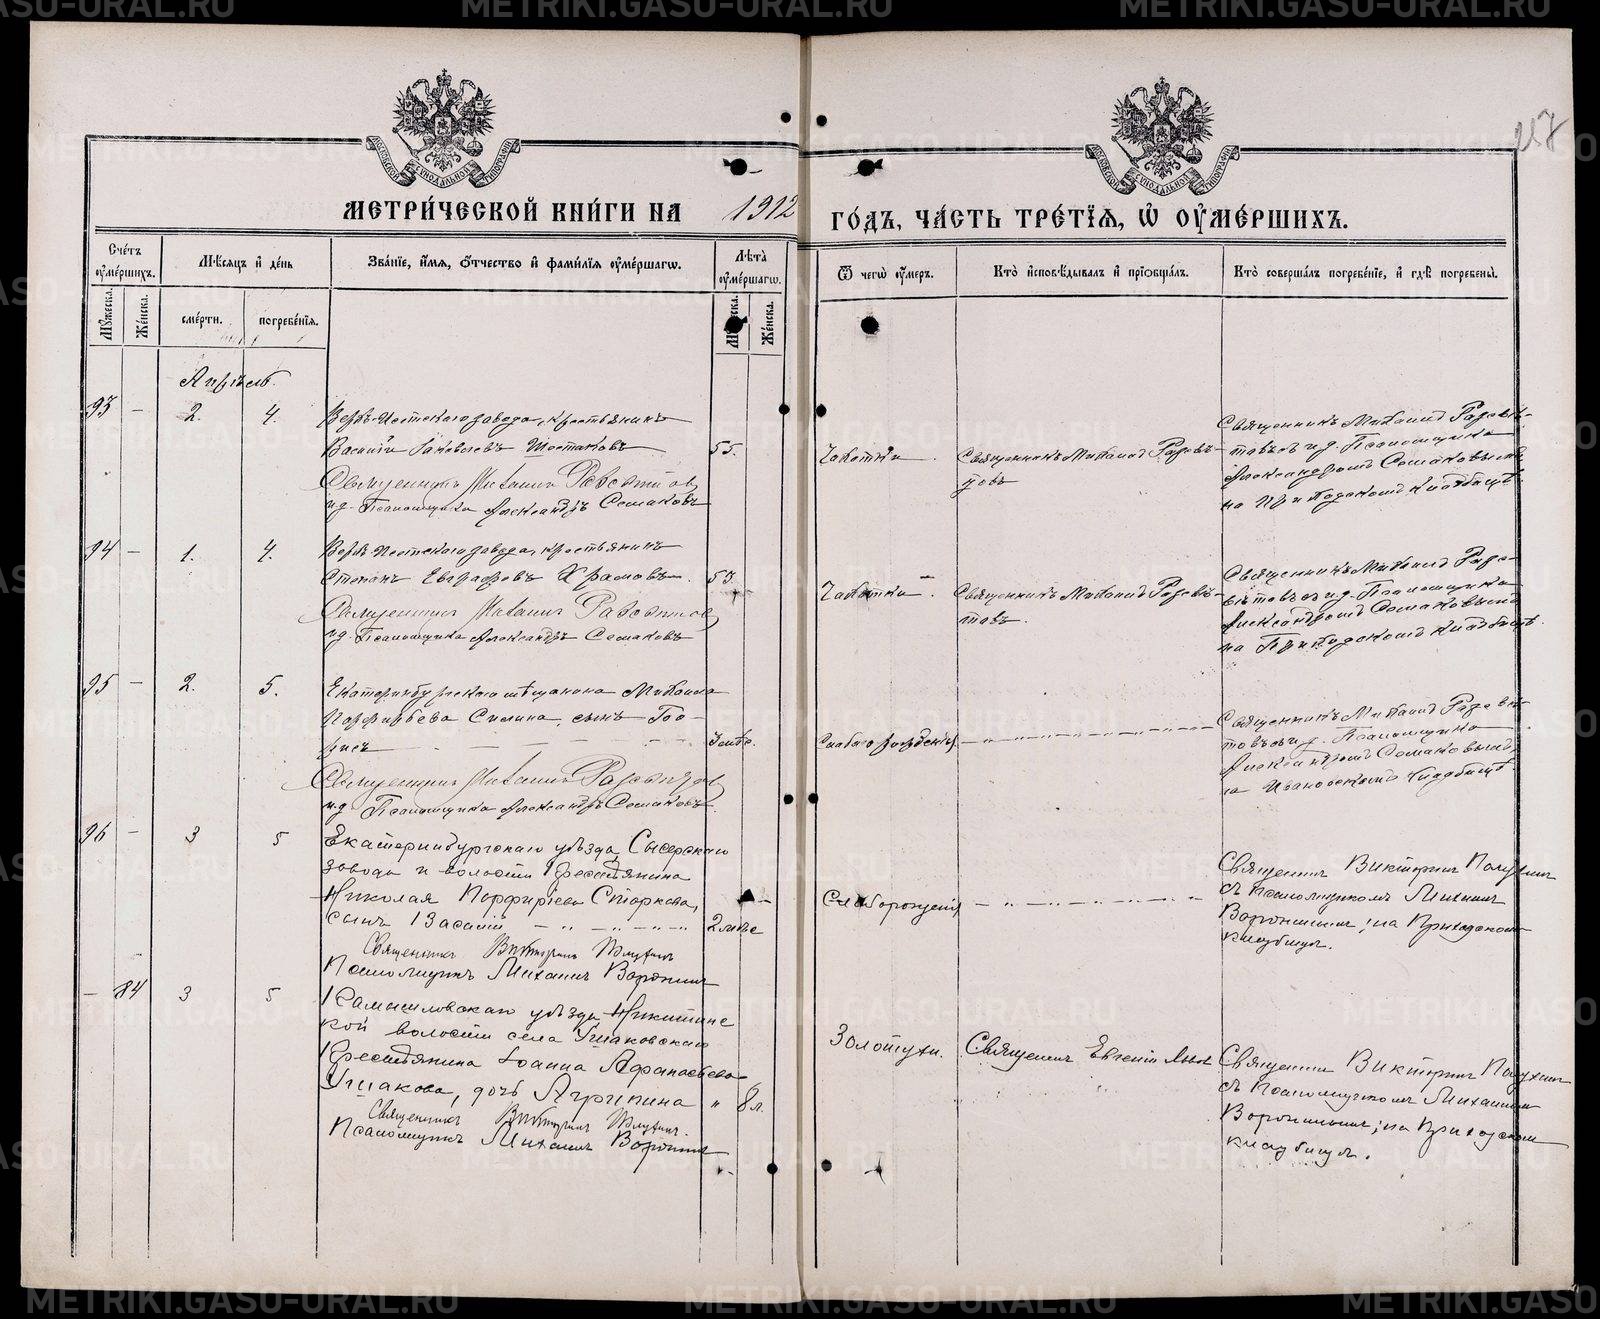 217
МЕТРИ́ЧЕСКОЙ КНИ́ГИ НА 1912 ГО́ДЪ, ЧА́СТЬ ТРЕ́ТЇѦ, Ѡ҆ ОУ҆МЕ́РШИХЪ.
Сче́тъ оу҆ме́ршихъ.
Мꙋ́жеска.
Же́нска.
Мѣ́сѧцъ и҆ де́нь
сме́рти.
погребе́нїѧ.
Зва́нїе, и҆́мѧ, ѻ҆́тчество и҆ фами́лїѧ оу҆ме́ршагѡ.
Лѣ́та оу҆ме́ршагѡ.
Мꙋ́жеска.
Же́нска.
Ѿ чегѡ̀ оу҆́меръ.
Кто̀ и҆сповѣ́дывалъ и҆ прїѡбща́лъ.
Кто̀ соверша́лъ погребе́нїе, и҆ гдѣ̀ погребены̀.
Апрѣль.
93 — 2. 4.
Верхъ-Исетскаго завода, крестьянинъ
Василій Іаковлевъ Шестаковъ 55.
Священникъ Михаилъ
и.д. Псаломщика Александръ Семаковъ
Чахотки.
Священникъ Михаилъ
Священникъ Михаилъ
и.д. Псаломщика
Александромъ Семаковымъ
на Приходскомъ кладбищѣ.
94 — 1. 4.
Верхъ-Исетскаго завода, крестьянинъ
Степанъ Евграфовъ Храмовъ 53.
Священникъ Михаилъ
и.д. Псаломщика Александръ Семаковъ
Чахотки.
Священникъ Михаилъ
Священникъ Михаилъ
и.д. Псаломщика
Александромъ Семаковымъ
на Приходскомъ кладбищѣ.
95 — 2. 5.
Екатеринбургскаго мѣщанина Михаила
Порфирьева Силина, сынъ Геор-
гій
Священникъ Михаилъ
и.д. Псаломщика Александръ Семаковъ
Слабаго рожденія
Священникъ Михаилъ
и.д. Псаломщика
Александромъ Семаковымъ
на Ивановскомъ кладбищѣ.
96 — 3 5
Екатеринбургскаго уѣзда, Сысерскаго
завода и волости Крестьянина
Николая Порфиріева Старкова,
сынъ Василій 2 мѣс
Священникъ Викторинъ
Псаломщикъ Михаилъ Воронинъ
Слаборожденія
Священникъ Викторинъ
съ псаломщикомъ Михаиломъ
Воронинымъ; на Приходскомъ
кладбищѣ.
— 84 3 5
Камышловскаго уѣзда Никитинс
кой волости села Ушаковскаго
Крестьянина Іоанна Афанасьева
Ушакова, дочь Агрипина " 8 л.
Священникъ Викторинъ
Псаломщикъ Михаилъ Воронинъ
Золотухи.
Священникъ Евгеній
Священникъ Викторинъ
съ Псаломщикомъ Михаиломъ
Воронинымъ; на Приходскомъ
кладбищѣ.
METRIKI.GASO-URAL.RU